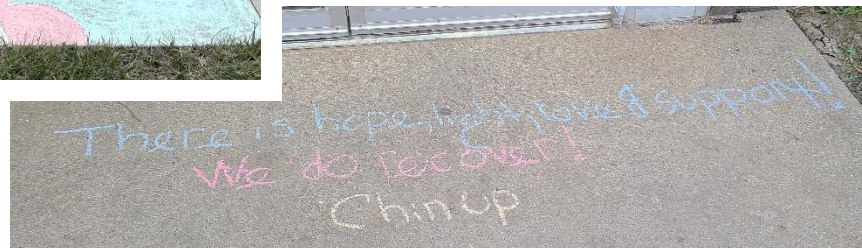 There is hope, light, love & support!
We do recover!
Chin up